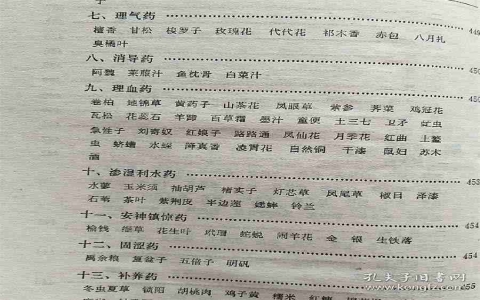 七、理气药 449
檀香 甘松 梭罗子 玫瑰花 代代花 祁木香 赤包 八月札
臭橘叶
八、消导药 450
阿魏 莱菔汁 鱼枕骨 白菜汁
九、理血药 450
卷柏 地锦草 黄药子 山茶花 凤眼草 紫参 荠菜 鸡冠花
瓦松 花蕊石 羊蹄 百草霜 墨汁 童便 土三七 卫矛 虻虫
急性子 刘寄奴 红娘子 路路通 凤仙花 月季花 红曲 土鳖
虫 蛴螬 水蛭 降真香 凌霄花 自然铜 干漆 鼠妇 苏木
酒
十、渗湿利水药 453
水蓼 玉米须 抽葫芦 楮实子 灯芯草 凤尾草 椒目 泽漆
石苇 茶叶 紫荆皮 半边莲 蟋蟀 铃兰
十一、安神镇惊药 454
榆钱 缬草 花生叶 玳瑁 蛇蜕 闹羊花 金 银 生铁落
十二、固涩药 454
禹余粮 复盆子 五倍子 明矾
十三、补养药 455
冬虫夏草 锁阳 胡桃肉 鸡子黄 糯米 红糖
孔夫子旧书网